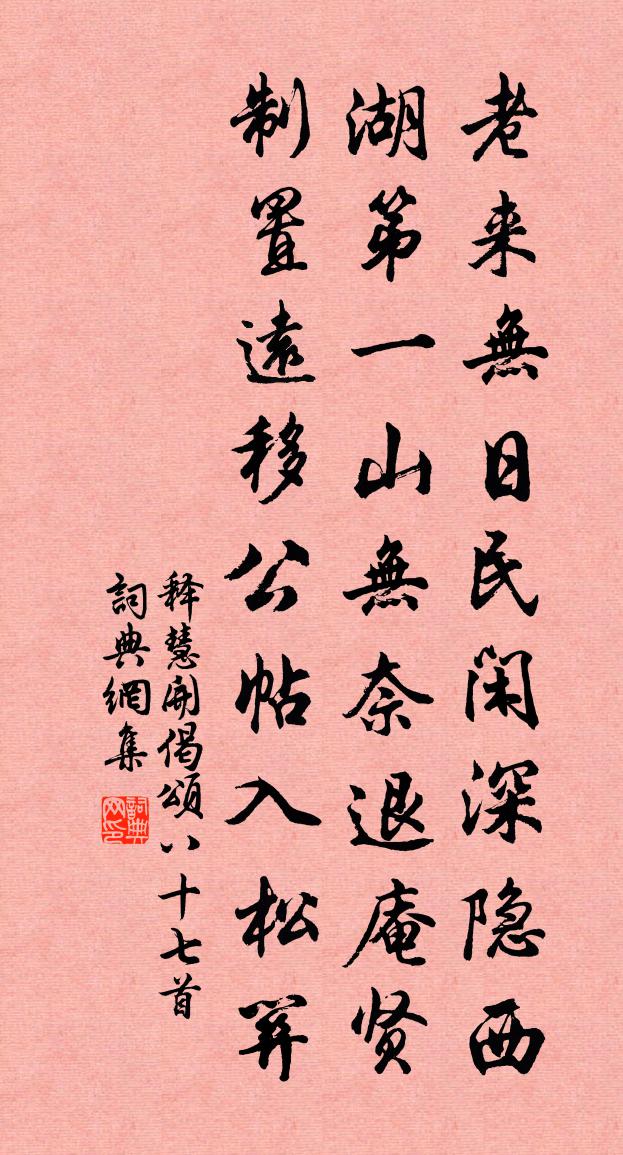 老来無日民闲深隐西
湖第一山無奈退庵贤
制置遠移公帖入松
释慧開偈頌八十七首
詞典網集
詞典網印